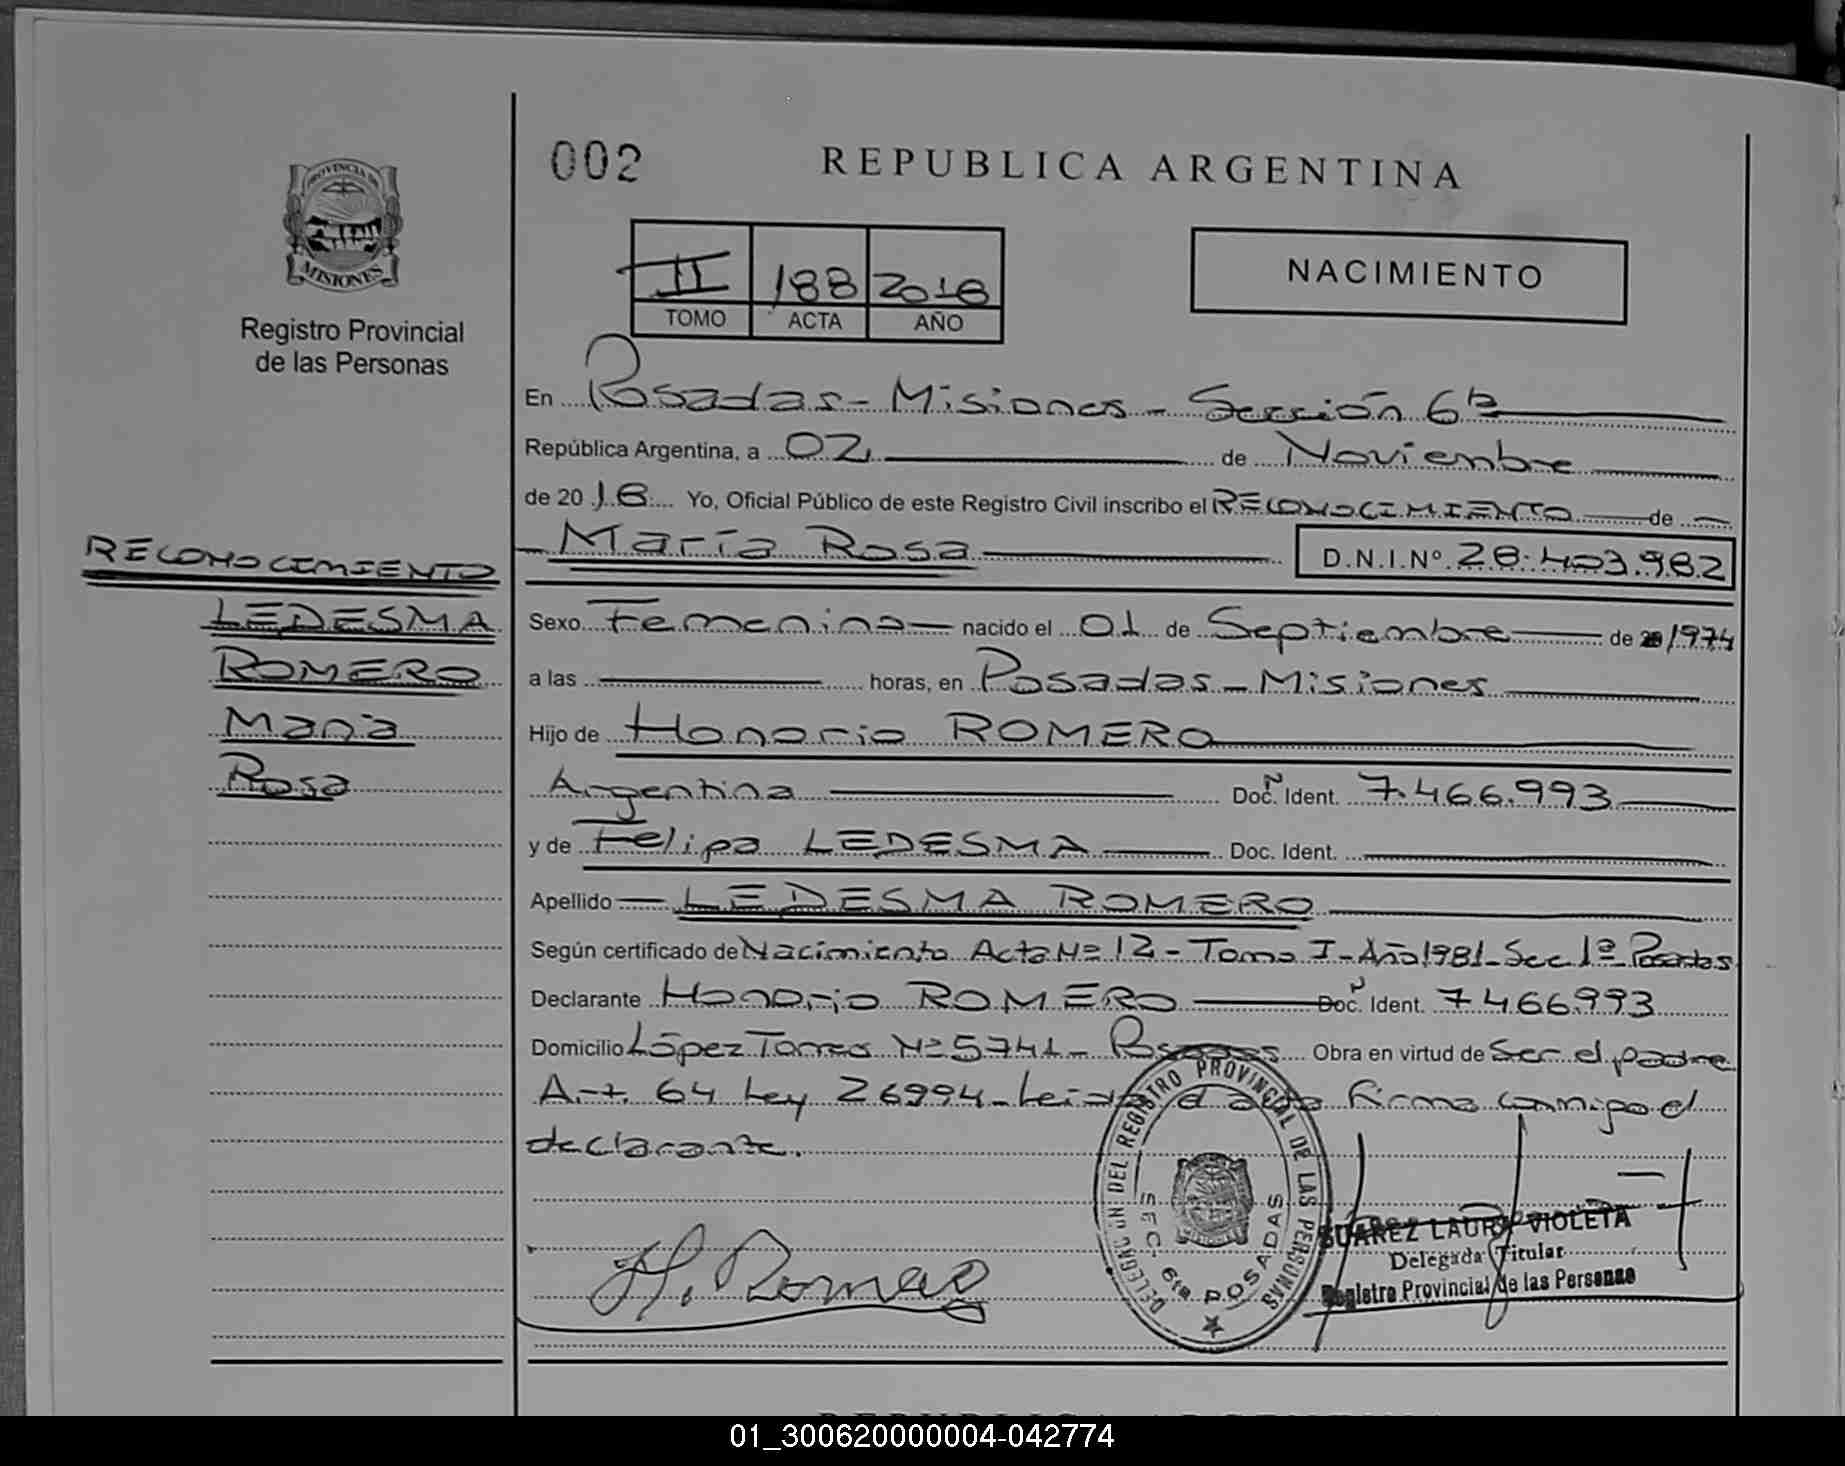 PROVINCIA DE
MISIONES
Registro Provincial
de las Personas
RECONOCIMIENTO
LEDESMA
ROMERO
María
Rosa
002 REPUBLICA ARGENTINA
II 188 2018
TOMO ACTA AÑO
NACIMIENTO
En Posadas - Misiones - Sección 6ta
República Argentina, a 02 de Noviembre
de 20 18 Yo, Oficial Público de este Registro Civil inscribo el RECONOCIMIENTO de
María Rosa D.N.I.Nº 28.403.982
Sexo Femenino nacido el 01 de Septiembre de 1974
a las horas, en Posadas - Misiones
Hijo de Honorio ROMERO
Argentina Doc. Ident. 7.466.993
y de Felipa LEDESMA Doc. Ident.
Apellido LEDESMA ROMERO
Según certificado de Nacimiento Acta Nº 12 - Tomo I - Año 1981 - Sec 1ª Posadas
Declarante Honorio ROMERO Doc. Ident. 7.466.993
Domicilio López Torres Nº 5741 - Posadas Obra en virtud de Ser el padre
Art. 64 Ley 26994 - Leida el acta firma conmigo el
declarante.
H. Romero
DELEGACION DEL REGISTRO PROVINCIAL DE LAS PERSONAS
SEC. 6ta POSADAS
SUAREZ LAURA VIOLETA
Delegada Titular
Registro Provincial de las Personas
01_300620000004-042774